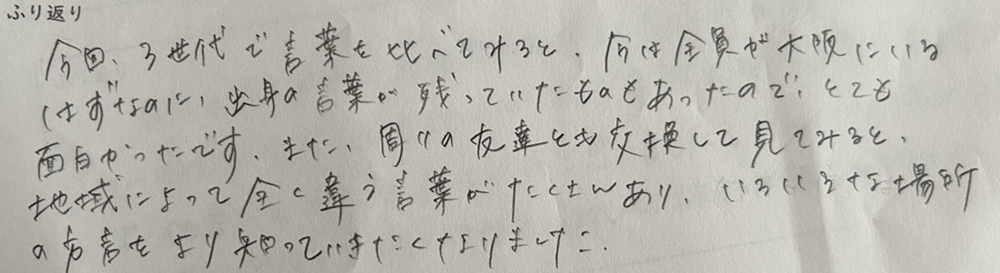 ふり返り
今回、3世代で言葉を比べてみると、今は全員が大阪にいる
はずなのに、出身の言葉が残っていたものもあったので、とても
面白かったです。また、周りの友達とも交換して見てみると、
地域によって全く違う言葉がたくさんあり、いろいろな場所
の方言をより知っていきたくなりました。